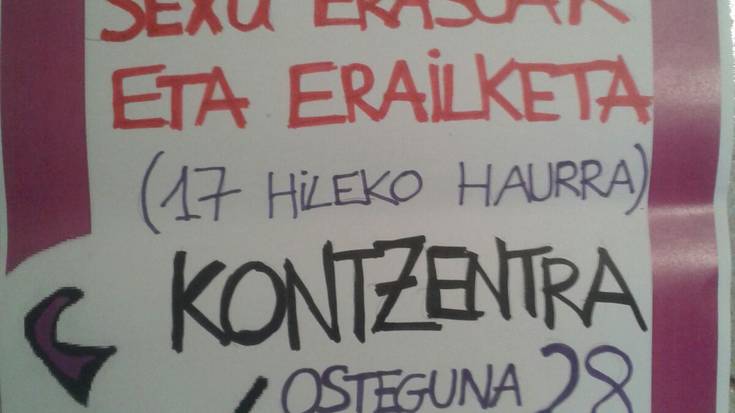 SEXU ERASOAK
ETA ERAILKETA
(17 HILEKO HAURRA)
KONTZENTRA
OSTEGUNA 28